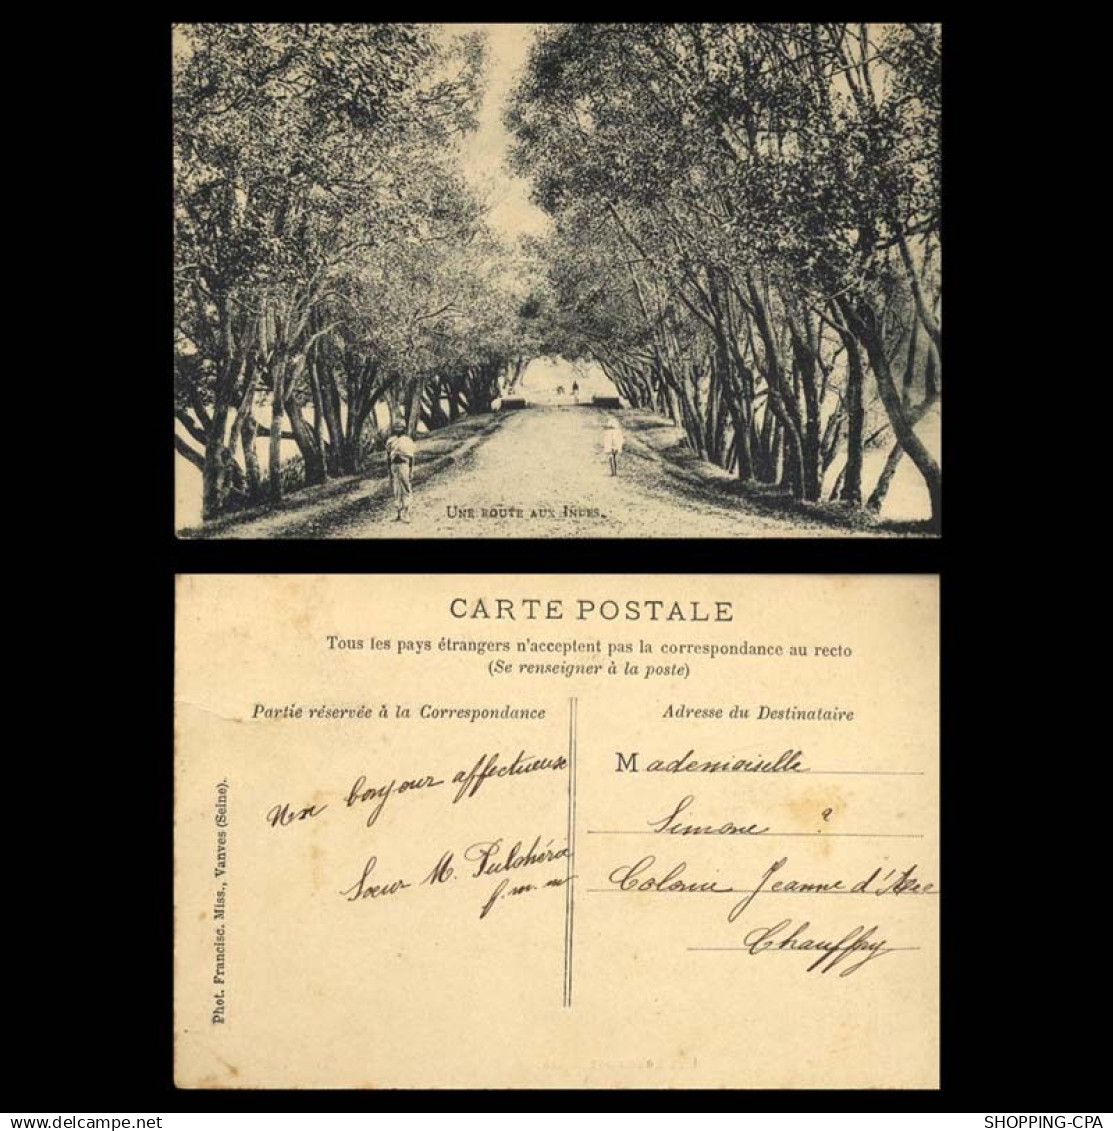 UNE ROUTE AUX INDES.
CARTE POSTALE
Tous les pays étrangers n'acceptent pas la correspondance au recto
(Se renseigner à la poste)
Partie réservée à la Correspondance
Un bonjour affectueux
Sœur M. Pulchéra
f. m. m
Phot. Francisc. Miss., Vanves (Seine).
Adresse du Destinataire
Mademoiselle
Simone ?
Colonie Jeanne d'Arc
Chauffry
SHOPPING-CPA